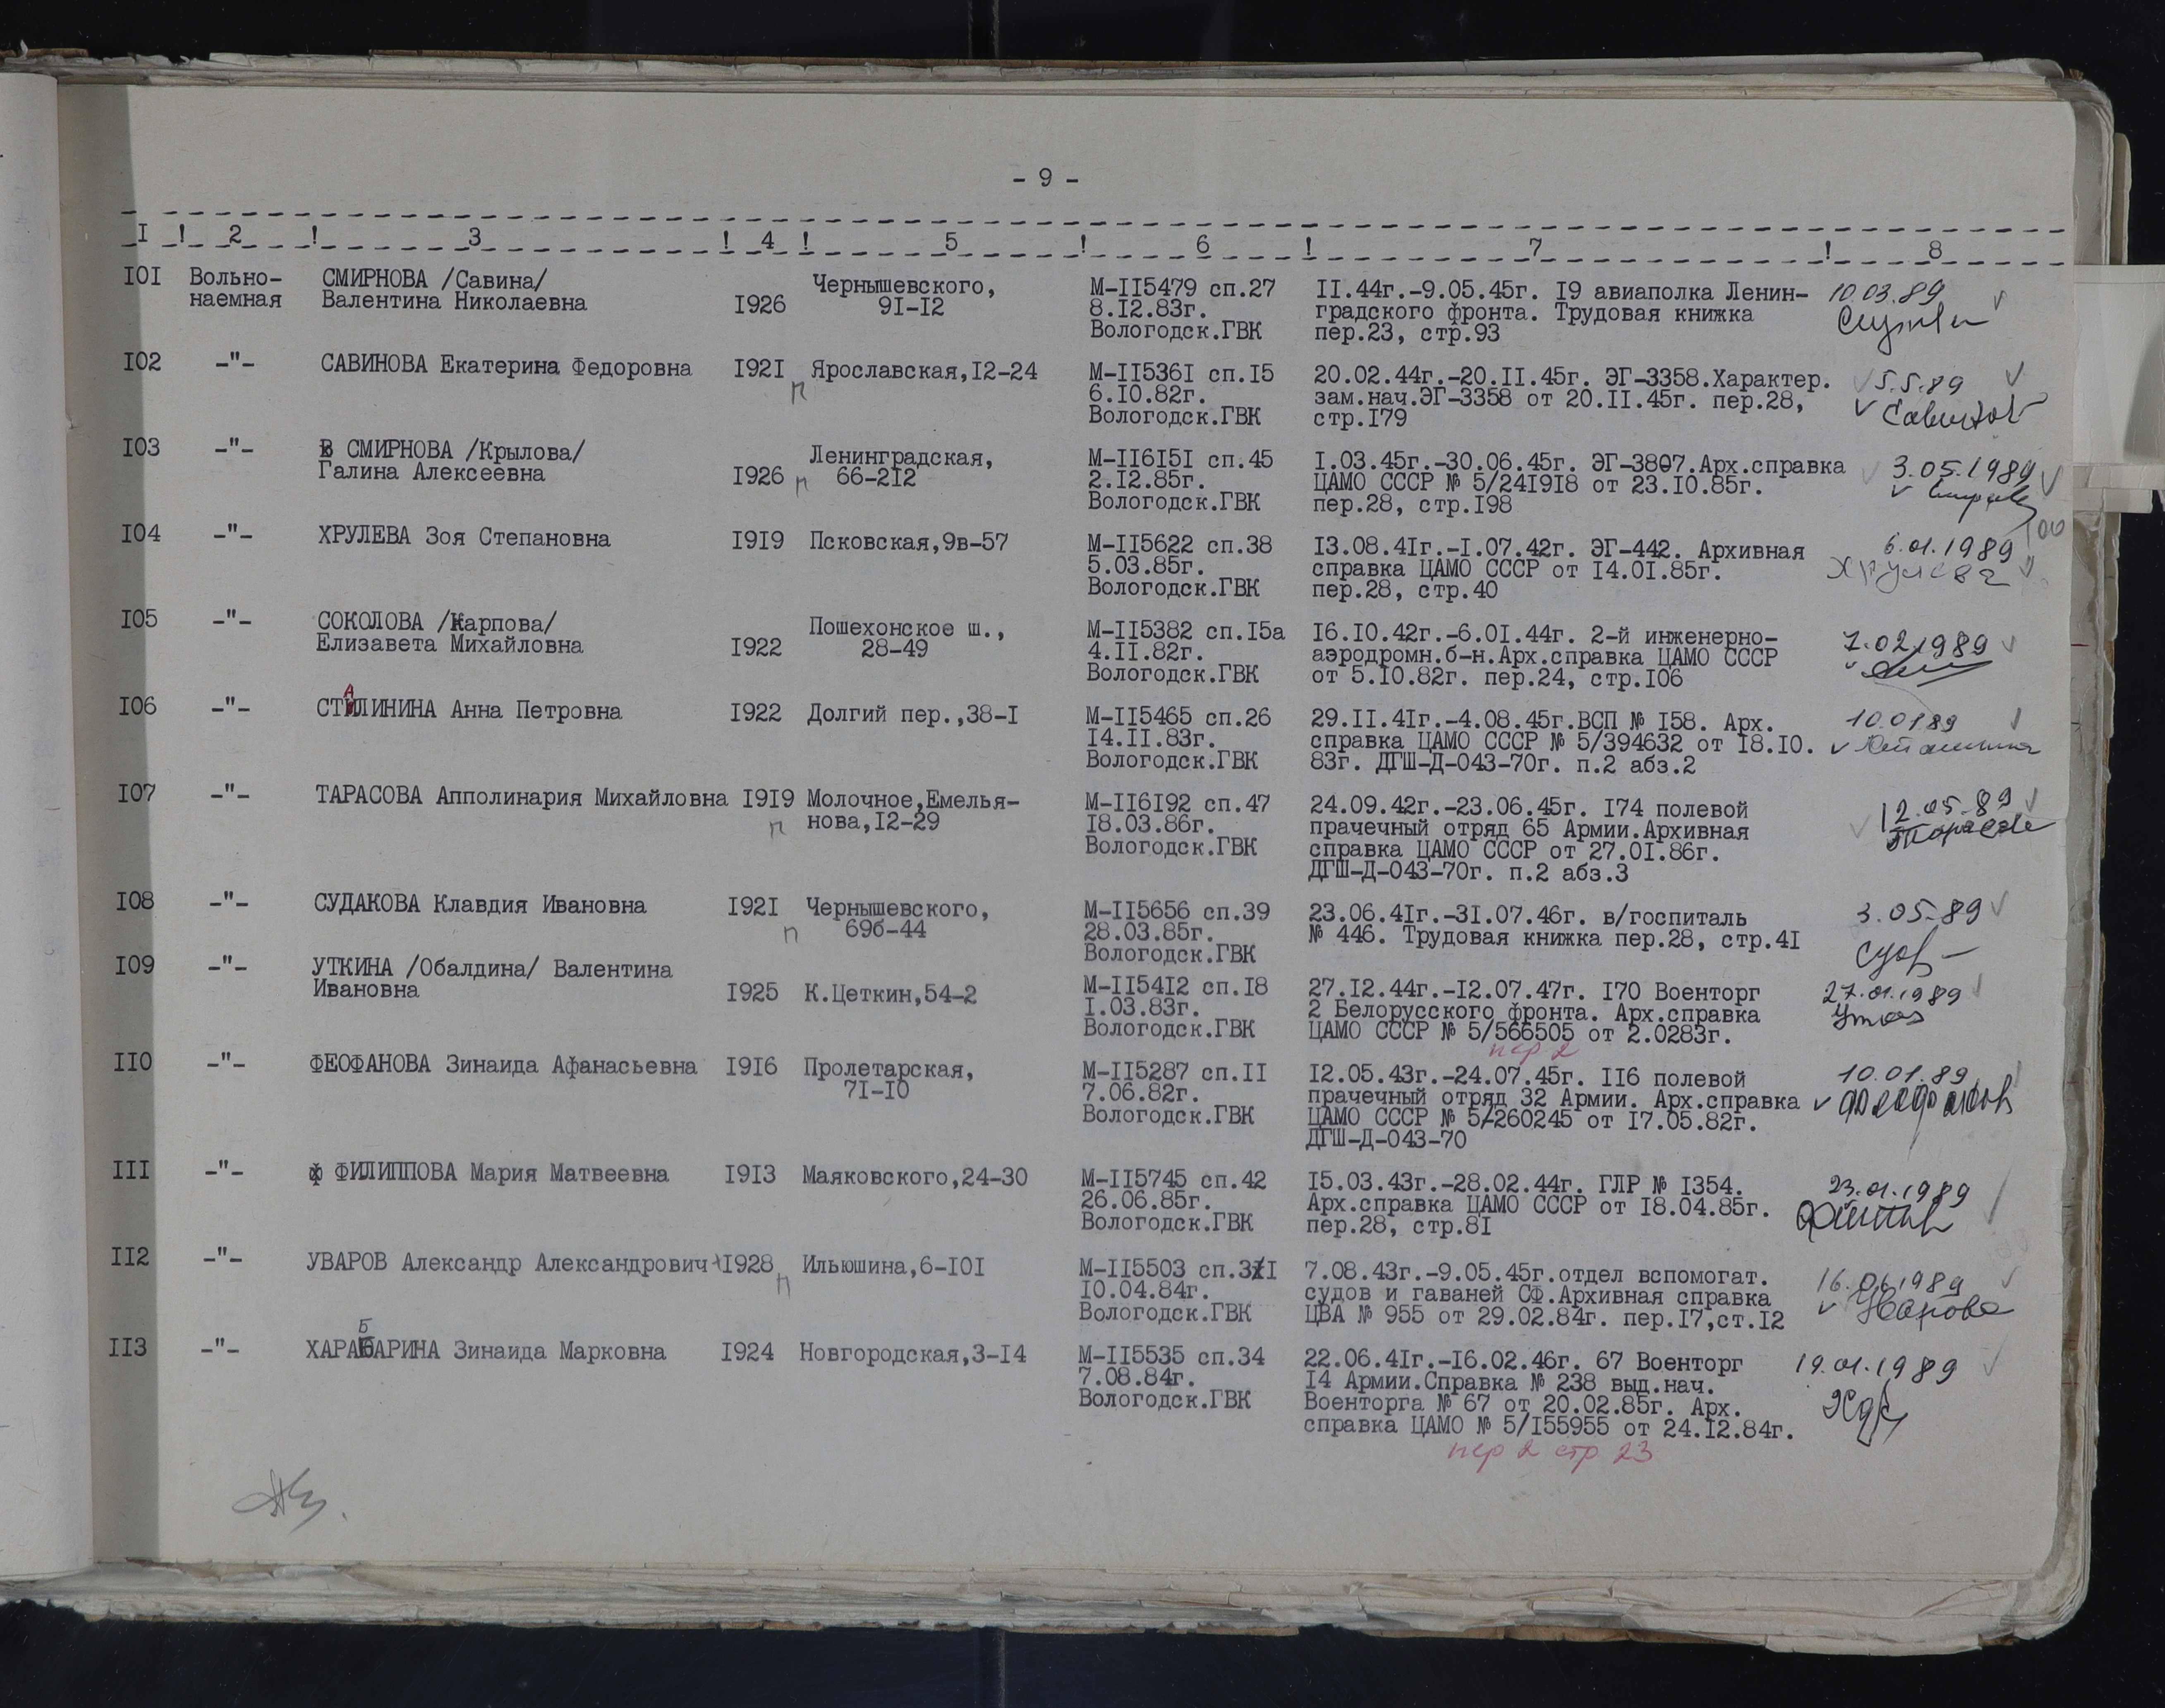 - 9 -
I ! 2 ! 3 ! 4 ! 5 ! 6 ! 7 ! 8
I0I Вольно-наемная СМИРНОВА /Савина/ Валентина Николаевна I926 Чернышевского, 9I-I2
М-II5479 сп.27
8.I2.83г.
Вологодск.ГВК
II.44г.-9.05.45г. I9 авиаполка Ленин-
градского фронта. Трудовая книжка
пер.23, стр.93
10.03.89
I02 -"- САВИНОВА Екатерина Федоровна I92I п Ярославская,I2-24
М-II536I сп.I5
6.I0.82г.
Вологодск.ГВК
20.02.44г.-20.II.45г. ЭГ-3358.Характер.
зам.нач.ЭГ-3358 от 20.II.45г. пер.28,
стр.I79
5.5.89
I03 -"- СМИРНОВА /Крылова/ Галина Алексеевна I926 п Ленинградская, 66-2I2
М-II6I5I сп.45
2.I2.85г.
Вологодск.ГВК
I.03.45г.-30.06.45г. ЭГ-3807.Арх.справка
ЦАМО СССР № 5/24I9I8 от 23.I0.85г.
пер.28, стр.I98
3.05.1989
I04 -"- ХРУЛЕВА Зоя Степановна I9I9 Псковская,9в-57
М-II5622 сп.38
5.03.85г.
Вологодск.ГВК
I3.08.4Iг.-I.07.42г. ЭГ-442. Архивная
справка ЦАМО СССР от I4.0I.85г.
пер.28, стр.40
6.01.1989
Хрулева
I05 -"- СОКОЛОВА /Карпова/ Елизавета Михайловна I922 Пошехонское ш., 28-49
М-II5382 сп.I5а
4.II.82г.
Вологодск.ГВК
I6.I0.42г.-6.0I.44г. 2-й инженерно-
аэродромн.б-н.Арх.справка ЦАМО СССР
от 5.I0.82г. пер.24, стр.I06
7.02.1989
I06 -"- СТАЛИНИНА Анна Петровна I922 Долгий пер.,38-I
М-II5465 сп.26
I4.II.83г.
Вологодск.ГВК
29.II.4Iг.-4.08.45г.ВСП № I58. Арх.
справка ЦАМО СССР № 5/394632 от I8.I0.
83г. ДГШ-Д-043-70г. п.2 абз.2
10.01 89
I07 -"- ТАРАСОВА Апполинария Михайловна I9I9 п Молочное,Емелья-нова,I2-29
М-II6I92 сп.47
I8.03.86г.
Вологодск.ГВК
24.09.42г.-23.06.45г. I74 полевой
прачечный отряд 65 Армии.Архивная
справка ЦАМО СССР от 27.0I.86г.
ДГШ-Д-043-70г. п.2 абз.3
12.05.89
I08 -"- СУДАКОВА Клавдия Ивановна I92I п Чернышевского, 69б-44
М-II5656 сп.39
28.03.85г.
Вологодск.ГВК
23.06.4Iг.-3I.07.46г. в/госпиталь
№ 446. Трудовая книжка пер.28, стр.4I
3.05.89
I09 -"- УТКИНА /Обалдина/ Валентина Ивановна I925 К.Цеткин,54-2
М-II54I2 сп.I8
I.03.83г.
Вологодск.ГВК
27.I2.44г.-I2.07.47г. I70 Военторг
2 Белорусского фронта. Арх.справка
ЦАМО СССР № 5/566505 от 2.0283г.
пер 2
27.01.1989
II0 -"- ФЕОФАНОВА Зинаида Афанасьевна I9I6 Пролетарская, 7I-I0
М-II5287 сп.II
7.06.82г.
Вологодск.ГВК
I2.05.43г.-24.07.45г. II6 полевой
прачечный отряд 32 Армии. Арх.справка
ЦАМО СССР № 5/260245 от I7.05.82г.
ДГШ-Д-043-70
10.01.89
III -"- ФИЛИППОВА Мария Матвеевна I9I3 Маяковского,24-30
М-II5745 сп.42
26.06.85г.
Вологодск.ГВК
I5.03.43г.-28.02.44г. ГЛР № I354.
Арх.справка ЦАМО СССР от I8.04.85г.
пер.28, стр.8I
23.01.1989
II2 -"- УВАРОВ Александр Александрович I928 п Ильюшина,6-I0I
М-II5503 сп.3I
I0.04.84г.
Вологодск.ГВК
7.08.43г.-9.05.45г.отдел вспомогат.
судов и гаваней СФ.Архивная справка
ЦВА № 955 от 29.02.84г. пер.I7,ст.I2
Уварова
II3 -"- ХАРАБАРИНА Зинаида Марковна I924 Новгородская,3-I4
М-II5535 сп.34
7.08.84г.
Вологодск.ГВК
22.06.4Iг.-I6.02.46г. 67 Военторг
I4 Армии.Справка № 238 выд.нач.
Военторга № 67 от 20.02.85г. Арх.
справка ЦАМО № 5/I55955 от 24.I2.84г.
пер 2 стр 23
19.01.1989